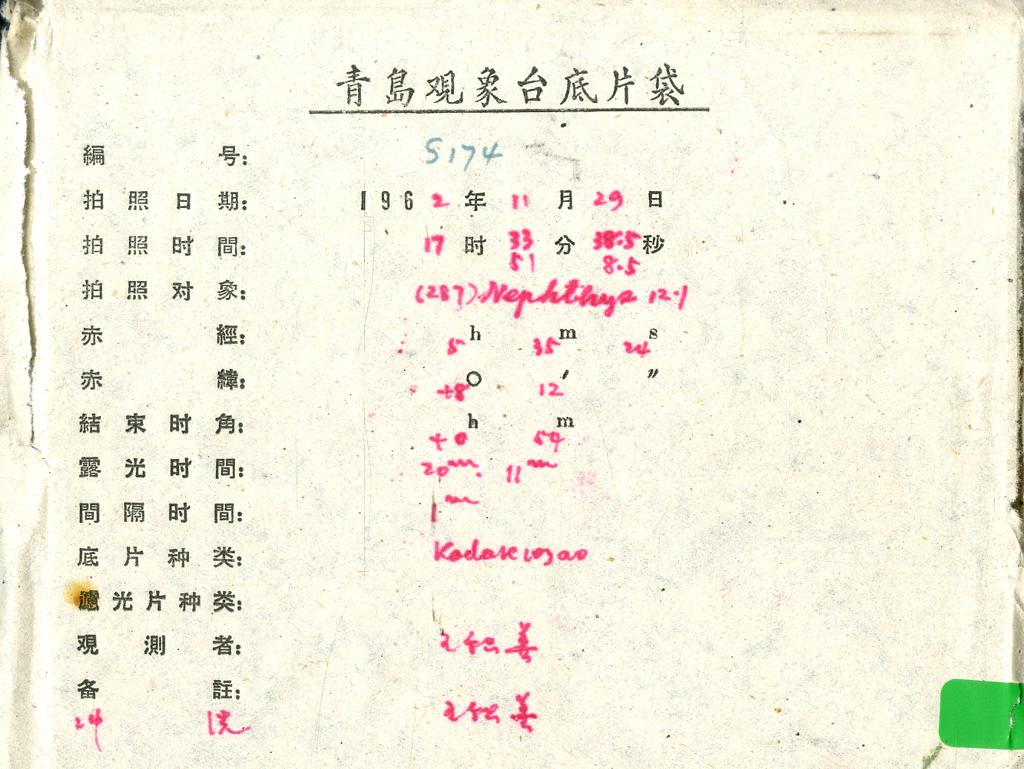 青島观象台底片袋
編号: S174
拍照日期: 1962年11月29日
拍照时間: 17时33分38.5秒
51 8.5
拍照对象: (287) Nephthys 12.1
赤經: 5h 35m 24s
赤緯: +8° 12′ ″
結束时角: +0h 54m
露光时間: 20m. 11m
間隔时間: 1m
底片种类: Kodak 103aO
濾光片种类:
观測者: 善
备註:
冲洗 善